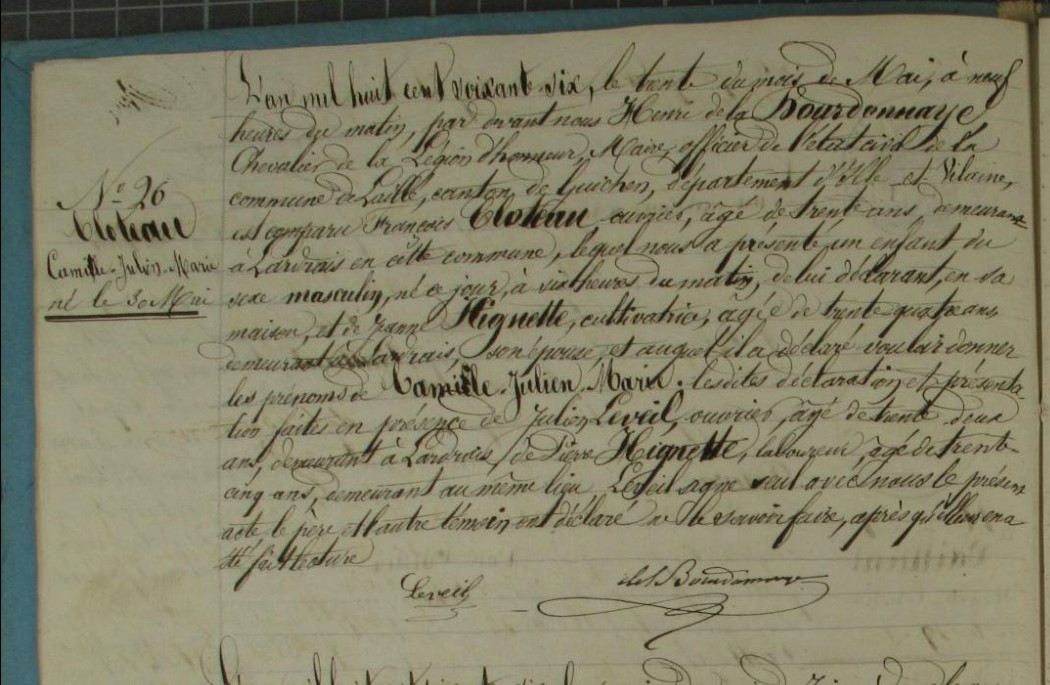 N° 26
Cloteau
Camille-Julien-Marie
né le 30 Mai
L'an mil huit cent soixante six, le trente du mois de Mai, à neuf
heures du matin, par devant nous Henri de la Bourdonnaye
Chevalier de la Légion d'honneur, Maire, officier de l'état civil de la
commune de Laillé, canton de Guichen, département d'Ille-et-Vilaine,
est comparu François Cloteau ouvrier, âgé de trente ans, demeurant
à Lardrais en cette commune, lequel nous a présenté un enfant du
sexe masculin, né ce jour, à six heures du matin, de lui déclarant, en sa
maison, et de Jeanne Hignette, cultivatrice, âgée de trente-quatre ans
demeurant à Lardrais, son épouse, et auquel il a déclaré vouloir donner
les prénoms de Camille-Julien-Marie. lesdites déclaration et présenta-
tion faites en présence de Julien Leveil, ouvrier, âgé de trente deux
ans, demeurant à Lardrais, de Pierre Hignette, laboureur, âgé de trente-
cinq ans, demeurant au même lieu Leveil signe seul avec nous le présent
acte le père et l'autre témoin ont déclaré ne le savoir faire, après qu'il leur en a
été fait lecture
Leveil
de la Bourdonnaye